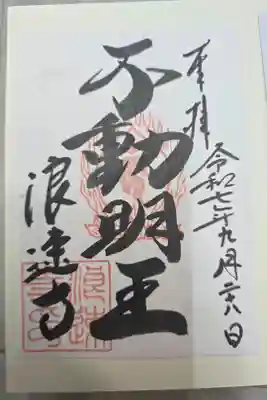 奉拝
令和七年九月二六日
不動明王
浪速寺